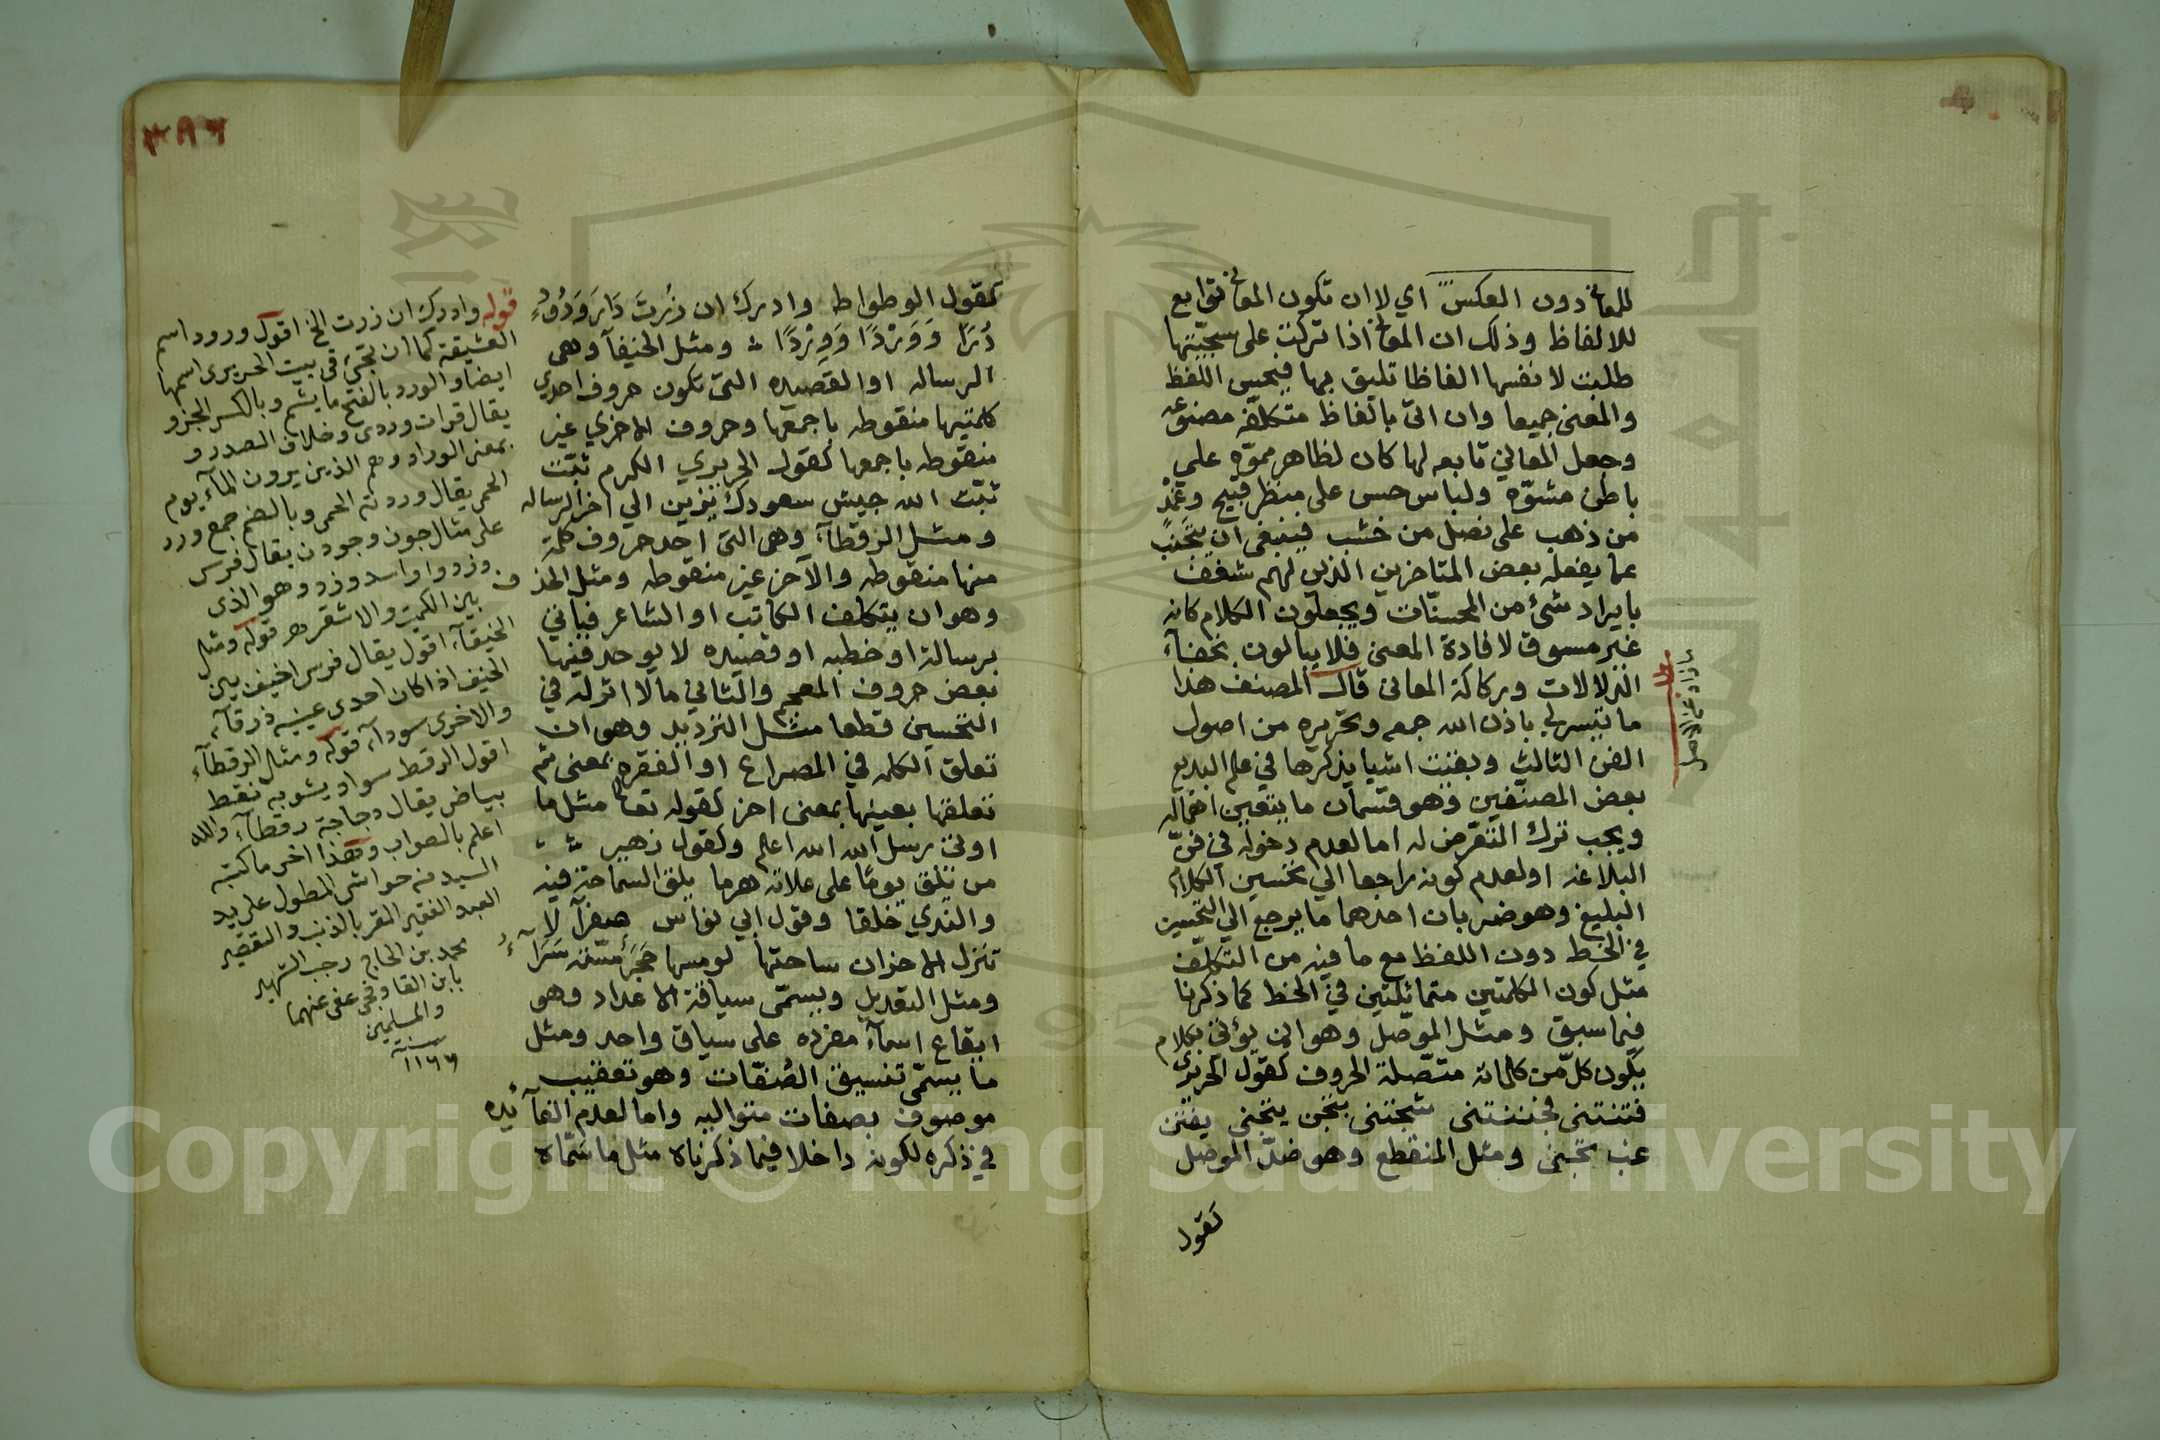 للمعانى دون العكس اي لا ان تكون المعانى توابع
للالفاظ وذلك ان المعانى اذا تركت على سجيّتها
طلبت لانفسها الفاظا تليق بها فيحسن اللفظ
والمعنى جميعا وان اتى بالفاظ متكلفه مصنوعه
وجعل المعاني تابعه لها كان لظاهر مموّه علي
باطن مشوّه ولباس حسن على منظر قبيح وغمد
من ذهب على نصل من خشب فينبغى ان يجتنب
عما يفعله بعض المتاخرين الذين لهم شغف
بايراد شئ من المحسنّات ويجعلون الكلام كانه
غير مسوق لافادة المعنى فلا يبالون بخفاء
الدلالات وركاكة المعانى قال المصنف هذا
ما تيسر لي باذن الله جمعه وتحريره من اصول
الفن الثالث وبقيت اشيا يذكرها في علم البديع
بعض المصنّفين وهو قسمان ما يتعين اهماله
ويجب ترك التعرض له اما لعدم دخوله في فنّ
البلاغه او لعدم كونه راجعا الي تحسين الكلام
البليغ وهو ضربان احدهما ما يرجع الي التحسين
في الخط دون اللفظ مع ما فيه من التكلّف
مثل كون الكلمتين متماثلتين في الخط كما ذكرنا
فيما سبق ومثل الموصّل وهو ان يؤتى بكلام
يكون كلّ من كلماته متصّلة الحروف كقول الحريري
فتنتنى فجننتنى تجنى بتجن يتجنى يفتن
غب تجنى ومثل المنقطع وهو ضدّ الموصل
كقول
كقول الوطواط وادرك ان زرت دار ودود
درا ووردا ووردا ومثل الخيفآ وهى
الرساله او القصيده التى تكون حروف احدي
كلمتيها منقوطه باجمعها وحروف الاخري غير
منقوطه باجمعها كقول الحريري الكرم ثبّت
ثبّت الله جيش سعودك يزين الي اخر الرساله
ومثل الرقطآ وهى التى احد حروف كلمة
منها منقوطه والآخر غير منقوطه ومثل الحذف
وهو ان يتكلف الكاتب او الشاعر فياتي
برسالة او خطبه او قصيده لا يوجد فيها
بعض حروف المعجم والثاني ما لا اثر له في
التحسين قطعا مثل الترديد وهو ان
تعلق الكلمه في المصراع او الفقره بمعنى ثم
تعلقها بعينها بمعنى اخر كقوله تعالى مثل ما
اوتى رسل الله الله اعلم وكقول زهير
من تلق يومًا على علاته هرما يلق السماحة فيه
والندي خلقا وقول ابي نواس صفرآ لا
تنزل الاحزان ساحتها لو مسها حجر مسّته سرّآء
ومثل التعديل ويسمّى سياقة الاعداد وهو
ايقاع اسمآء مفرده على سياق واحد ومثل
ما يسمّى تنسيق الصّفات وهو تعقيب
موصوف بصفات متواليه واما لعدم الفآئده
في ذكره لكونه داخلا فيما ذكرناه مثل ما سمّاه
قوله وادرك ان زرت الخ اقول ورود اسم
العشيقة كما ان تجنى في بيت الحريرى اسمها
ايضا والورد بالفتح ما يشم وبالكسر الجزو
يقال قرات وردى وخلاف الصدر و
بمعنى الوراد وهم الذين يردون المآء يوم
الحمى يقال وردته الحمى وبالضم جمع ورد
على مثال جون وجون يقال فرس
ورد واسد ورد وهو الذى
بين الكميت والاشقر قوله ومثل
الخيفآء اقول يقال فرس اخيف بين
الخيف اذا كان احدى عينيه زرقآء
والاخرى سودآء قوله ومثل الرقطآء
اقول الرقط سواد يشوبه نقط
بياض يقال دجاجة رقطآء والله
اعلم بالصواب وهذا اخر ما كتبه
السيد من حواشى المطول على يد
العبد الفقير المقر بالذنب والتقصير
محمد بن الحاج رجب الشهير
بابن القاوقجى عفى عنهما
والمسلمين
سنة
١١٦٦